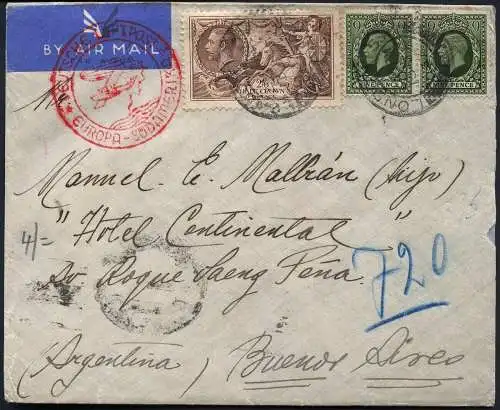 BY AIR MAIL
DEUTSCHE LUFTPOST
EUROPA - SÜDAMERIKA
HALF CROWN
NINE PENCE
NINE PENCE
LON
Manuel E. Malbrán (hijo)
"Hotel Continental"
4/=
Roque Saenz Peña
720
(Argentina) Buenos Aires